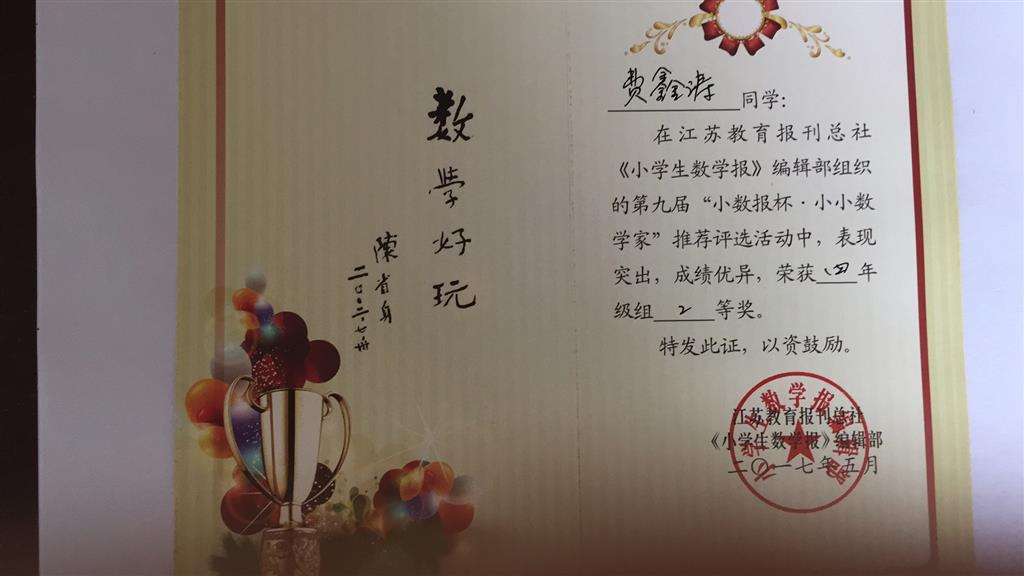 数学好玩
陳省身
费鑫涛同学：
在江苏教育报刊总社
《小学生数学报》编辑部组织
的第九届“小数报杯·小小数
学家”推荐评选活动中，表现
突出，成绩优异，荣获四年
级组2等奖。
特发此证，以资鼓励。
江苏教育报刊总社
《小学生数学报》编辑部
二〇一七年五月
小学生数学报编辑部